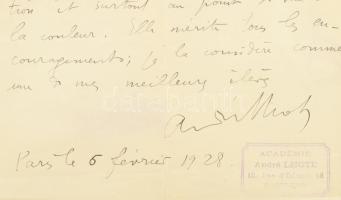 tion et surtout au point de vue
la couleur. Elle mérite tous les en-
couragements; je la considère comme
une de mes meilleurs élèves
André Lhote
Paris le 6 février 1928
ACADÉMIE
André LHOTE
18, Rue d'Odessa, 18